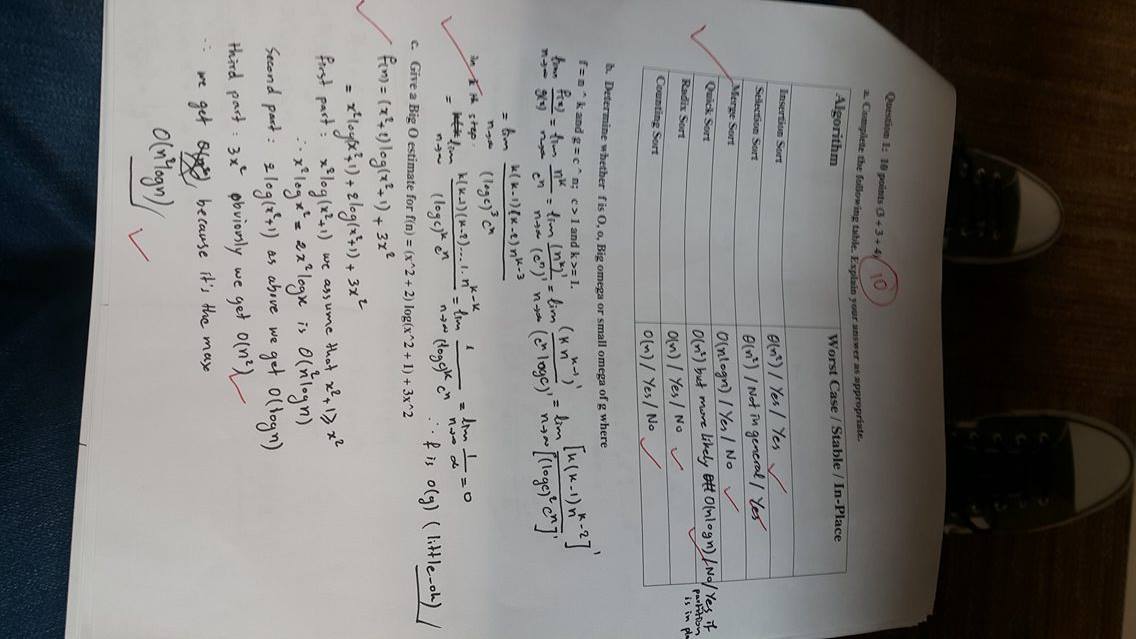 Question 1: 10 points (3 + 3 + 4) 10
a. Complete the following table. Explain your answer as appropriate.
Algorithm Worst Case / Stable / In-Place
Insertion Sort θ(n²) / Yes / Yes
Selection Sort θ(n²) / Not in general / Yes
Merge Sort O(nlogn) / Yes / No
Quick Sort O(n²) but more likely O(nlogn) / No / Yes if partition is in pla
Radix Sort O(n) / Yes / No
Counting Sort O(n) / Yes / No
b. Determine whether f is O, o, Big omega or small omega of g where
f = n ^ k and g = c ^ n; c > 1 and k >= 1.
lim n→∞ f(x)/g(x) = lim n→∞ n^k/c^n = lim n→∞ (n^k)'/(c^n)' = lim n→∞ (k n^k-1)'/(c^n logc)' = lim n→∞ [k(k-1)n^k-2]'/[(logc)² c^n]'
= lim n→∞ k(k-1)(k-2)n^k-3/(logc)³ c^n
in k th step.
= lim n→∞ k(k-1)(k-2)...1. n^k-k/(logc)^k c^n = lim n→∞ 1/(logc)^k c^n = lim n→∞ 1/∞ = 0
∴ f is o(g) (little-oh)
c. Give a Big O estimate for f(n) = (x^2 + 2) log(x^2 + 1) + 3x^2
f(n) = (x²+2)log(x²+1) + 3x²
= x²log(x²+1) + 2log(x²+1) + 3x²
first part: x²log(x²+1) we assume that x²+1 ⩾ x²
∴ x²logx² = 2x²logx is O(n²logn)
Second part: 2log(x²+1) as above we get O(logn)
third part: 3x² obviously we get O(n²)
∴ we get because it's the max
O(n²logn)